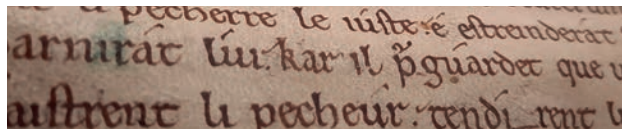 li pecherre le iuste: e estreinderat
arnirat lui. kar il p̃guardet que u
aistrent li pecheur: tendi rent l